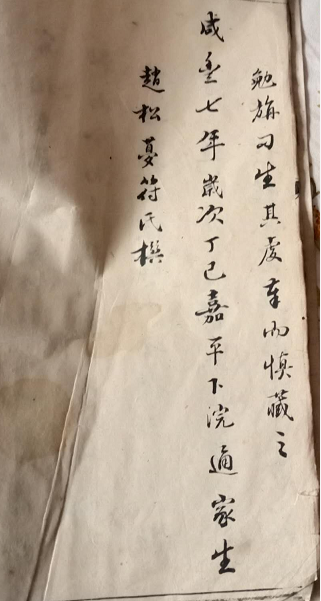 勉旃司生其虔奉而慎藏之
咸豐七年歲次丁巳嘉平下浣通家生
趙松夢符氏撰